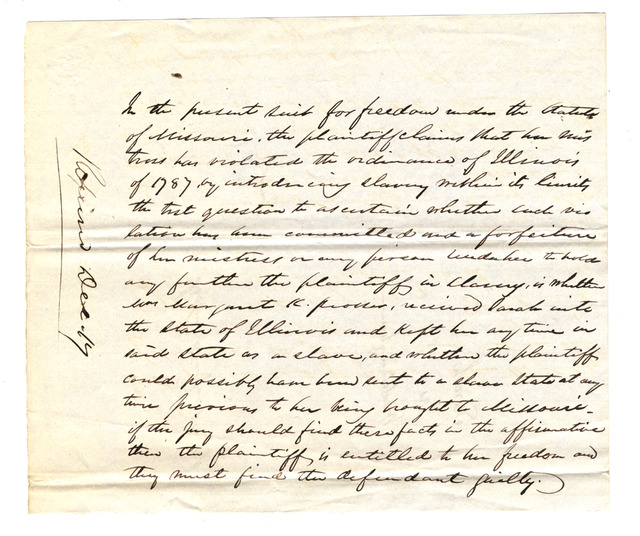 In the present suit for freedom under the Statute
of Missouri, the plaintiff claims that her mis
tress has violated the ordinance of Illinois
of 1787, by introducing slavery within its limits
the test question to ascertain whether such vio
lation has been committed and a forfeiture
of her mistress or any person under her to hold
any further the plaintiff in slavery, is whether
Mrs Margaret K. Prosser, received Sarah into
the State of Illinois and kept her any time in
said state as a slave, and whether the plaintiff
could possibly have been sent to a slave State at any
time previous to her being brought to Missouri -
if the jury should find these facts in the affirmative
then the plaintiff is entitled to her freedom and
they must find the defendant guilty.
Dec 19